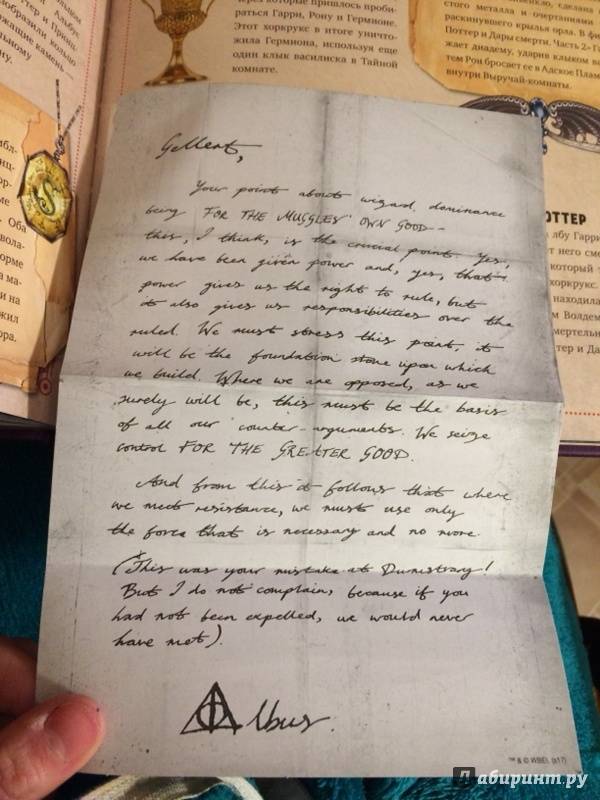 через которые пришлось проби-
раться Гарри, Рону и Гермионе.
Этот хоркрукс в итоге уничто-
жила Гермиона, используя еще
один клык василиска в Тайной
комнате.
стого металла и очертаниями
раскинувшего крылья орла. В фи
Поттер и Дары смерти. Часть 2» Га
жает диадему, ударив клыком ва
тем Рон бросает ее в Адское Плам
внутри Выручай-комнаты.
ОТТЕР
Gellert,
Your point about wizard dominance
being FOR THE MUGGLES' OWN GOOD--
this, I think, is the crucial point. Yes,
we have been given power and, yes, that
power gives us the right to rule, but
it also gives us responsibilities over the
ruled. We must stress this point, it
will be the foundation stone upon which
we build. Where we are opposed, as we
surely will be, this must be the basis
of all our counter-arguments. We seize
control FOR THE GREATER GOOD.
And from this it follows that where
we meet resistance, we must use only
the force that is necessary and no more.
(This was your mistake at Durmstrang!
But I do not complain, because if you
had not been expelled, we would never
have met).
Albus.
™ & © WBEI. (s17)
Лабиринт.ру